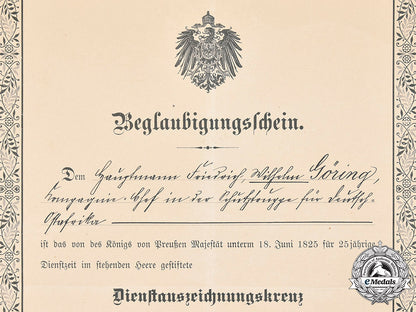 Beglaubigungsschein.
Dem Hauptmann Friedrich Wilhelm Göring,
Kompagnie-Chef in der Schutztruppe für Deutsch-
Ostafrika
ist das von des Königs von Preußen Majestät unterm 18. Juni 1825 für 25jährige
Dienstzeit im stehenden Heere gestiftete
Dienstauszeichnungskreuz
eMedals